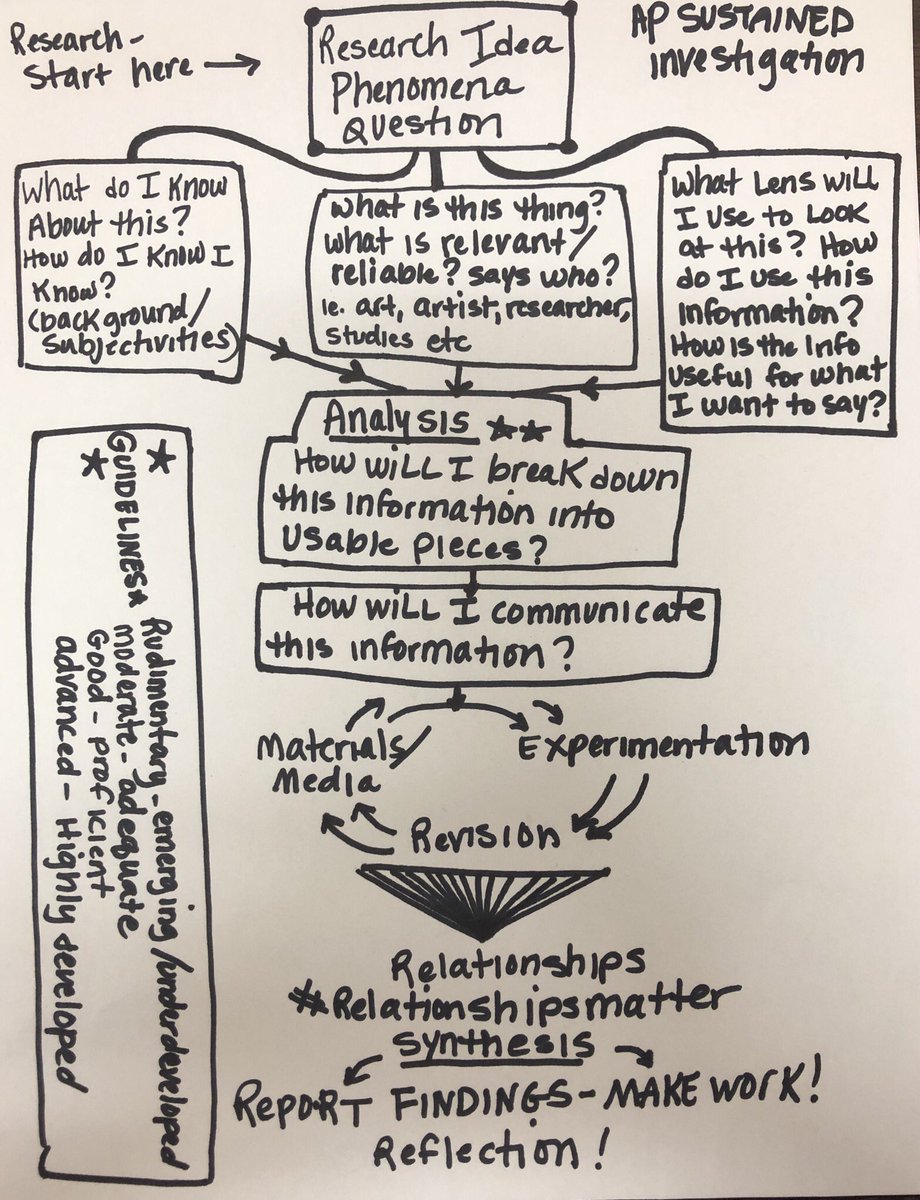 Research-
Start here →
Research Idea
Phenomena
Question
AP SUSTAINED
investigation
What do I Know
About this?
How do I Know I
Know?
(background/
Subjectivities)
What is this thing?
what is relevant/
reliable? says who?
ie. art, artist, researcher,
studies etc
What Lens will
I use to Look
at this? How
do I use this
information?
How is the info
useful for what
I want to say?
Analysis ★★
How will I break down
this information into
Usable pieces?
How will I communicate
this information?
Materials/
Media
Experimentation
Revision
Relationships
#Relationshipsmatter
synthesis
REPORT FINDINGS - MAKE WORK!
Reflection!
★ GUIDELINES ★
★
Rudimentary - emerging/underdeveloped
moderate - adequate
Good - proficient
advanced - Highly developed